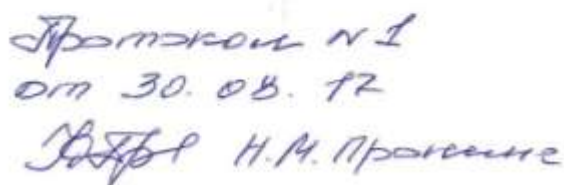 Протокол N1
от 30.08.12
Н.М. Пронине